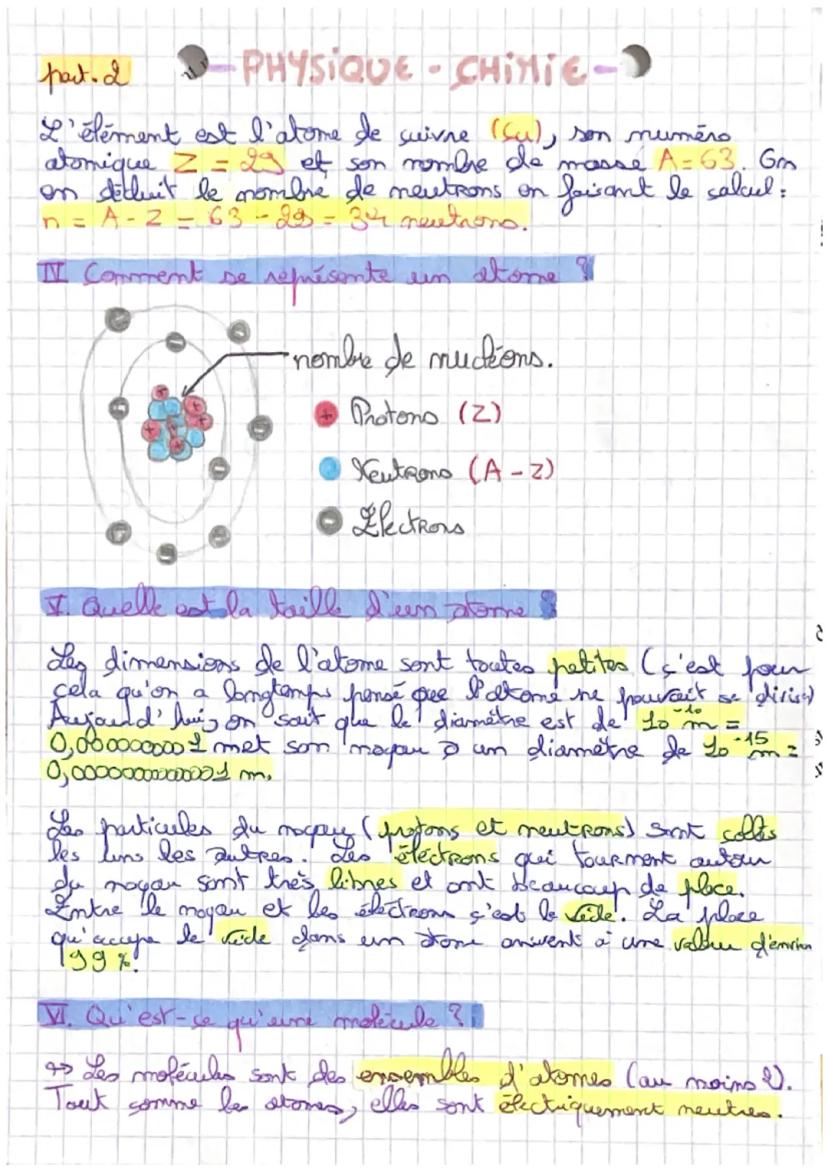 part. 2
PHYSIQUE - CHIMIE
L'élément est l'atome de cuivre (Cu), son numéro
atomique Z = 29 et son nombre de masse A = 63. On
en déduit le nombre de neutrons en faisant le calcul :
n = A - Z = 63 - 29 = 34 neutrons.
IV Comment se représente un atome ?
nombre de nucléons.
+ Protons (Z)
Neutrons (A - Z)
- Électrons
V. Quelle est la taille d'un atome ?
Les dimensions de l'atome sont toutes petites (c'est pour
cela qu'on a longtemps pensé que l'atome ne pouvait se divisé)
Aujourd'hui, on sait que le diamètre est de 10⁻¹⁰ m =
0,0000000001 m et son noyau a un diamètre de 10⁻¹⁵ m =
0,000000000000001 m.
Les particules du noyau (protons et neutrons) sont collés
les uns les autres. Les électrons qui tournent autour
du noyau sont très libres et ont beaucoup de place.
Entre le noyau et les électrons c'est le vide. La place
qu'occupe le vide dans un atome arrivent à une valeur d'environ
99 %.
VI. Qu'est-ce qu'une molécule ?
↪ Les molécules sont des ensembles d'atomes (au moins 2).
Tout comme les atomes, elles sont électriquement neutres.